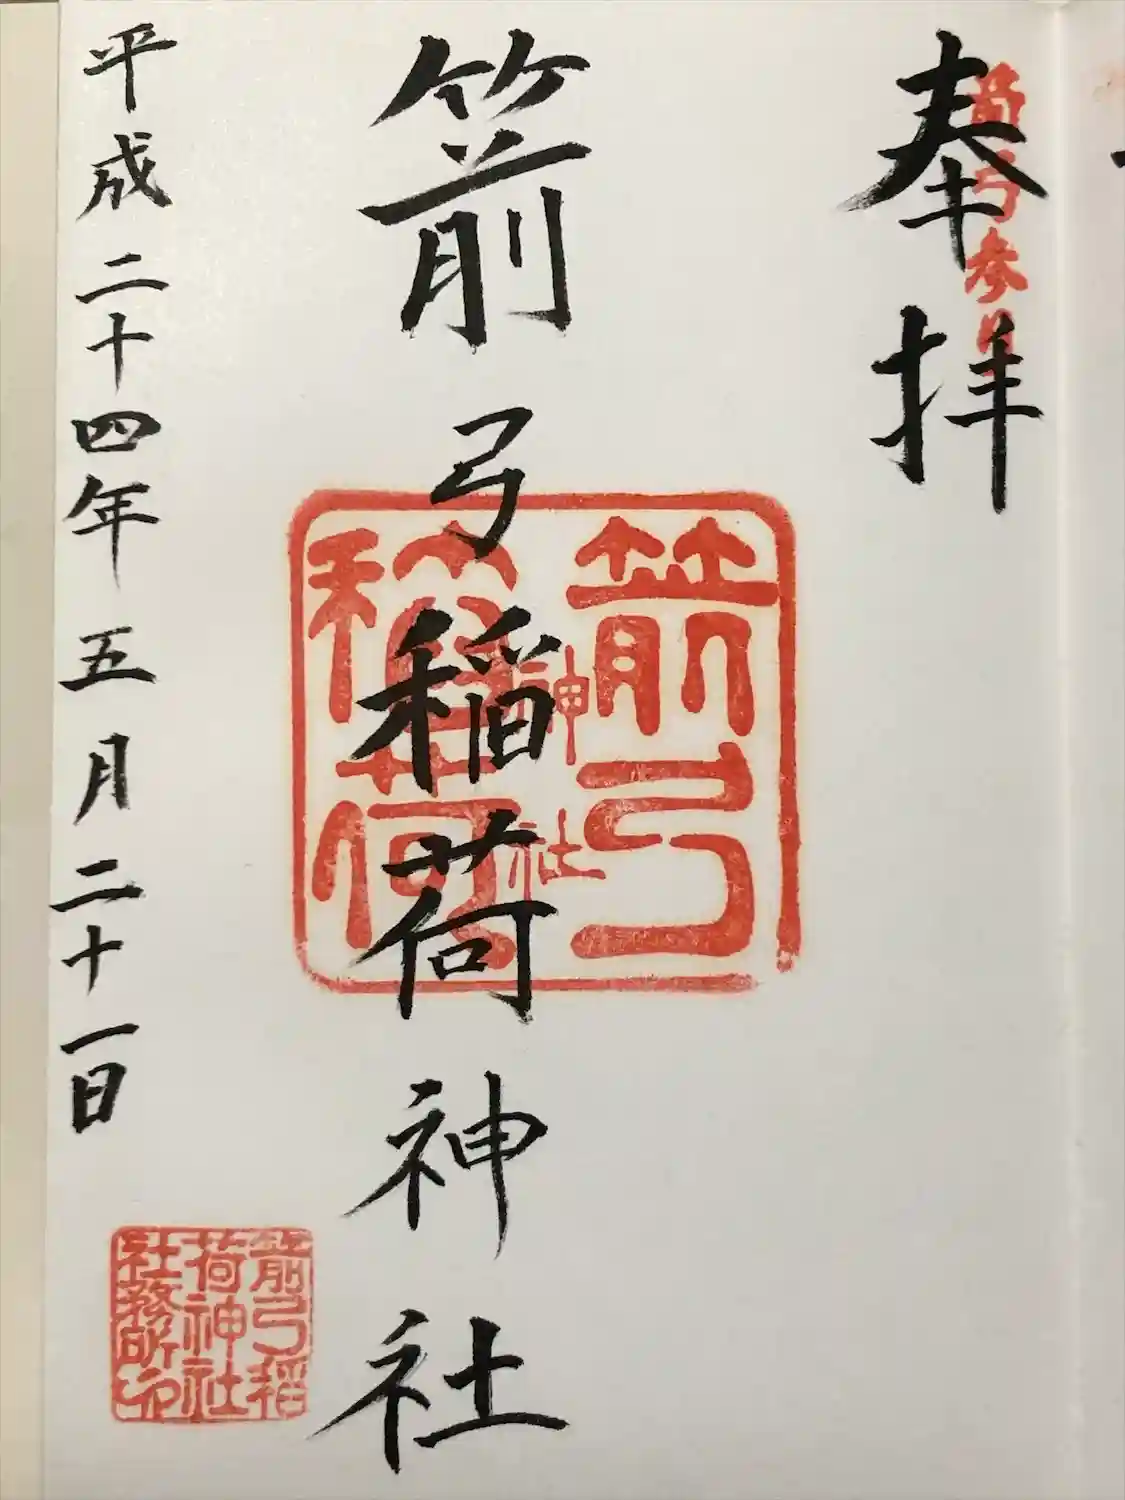 奉拝
箭弓参拝
箭弓稲荷神社
箭弓
稲荷
神社
平成二十四年五月二十一日
箭弓稲
荷神社
社務所之印